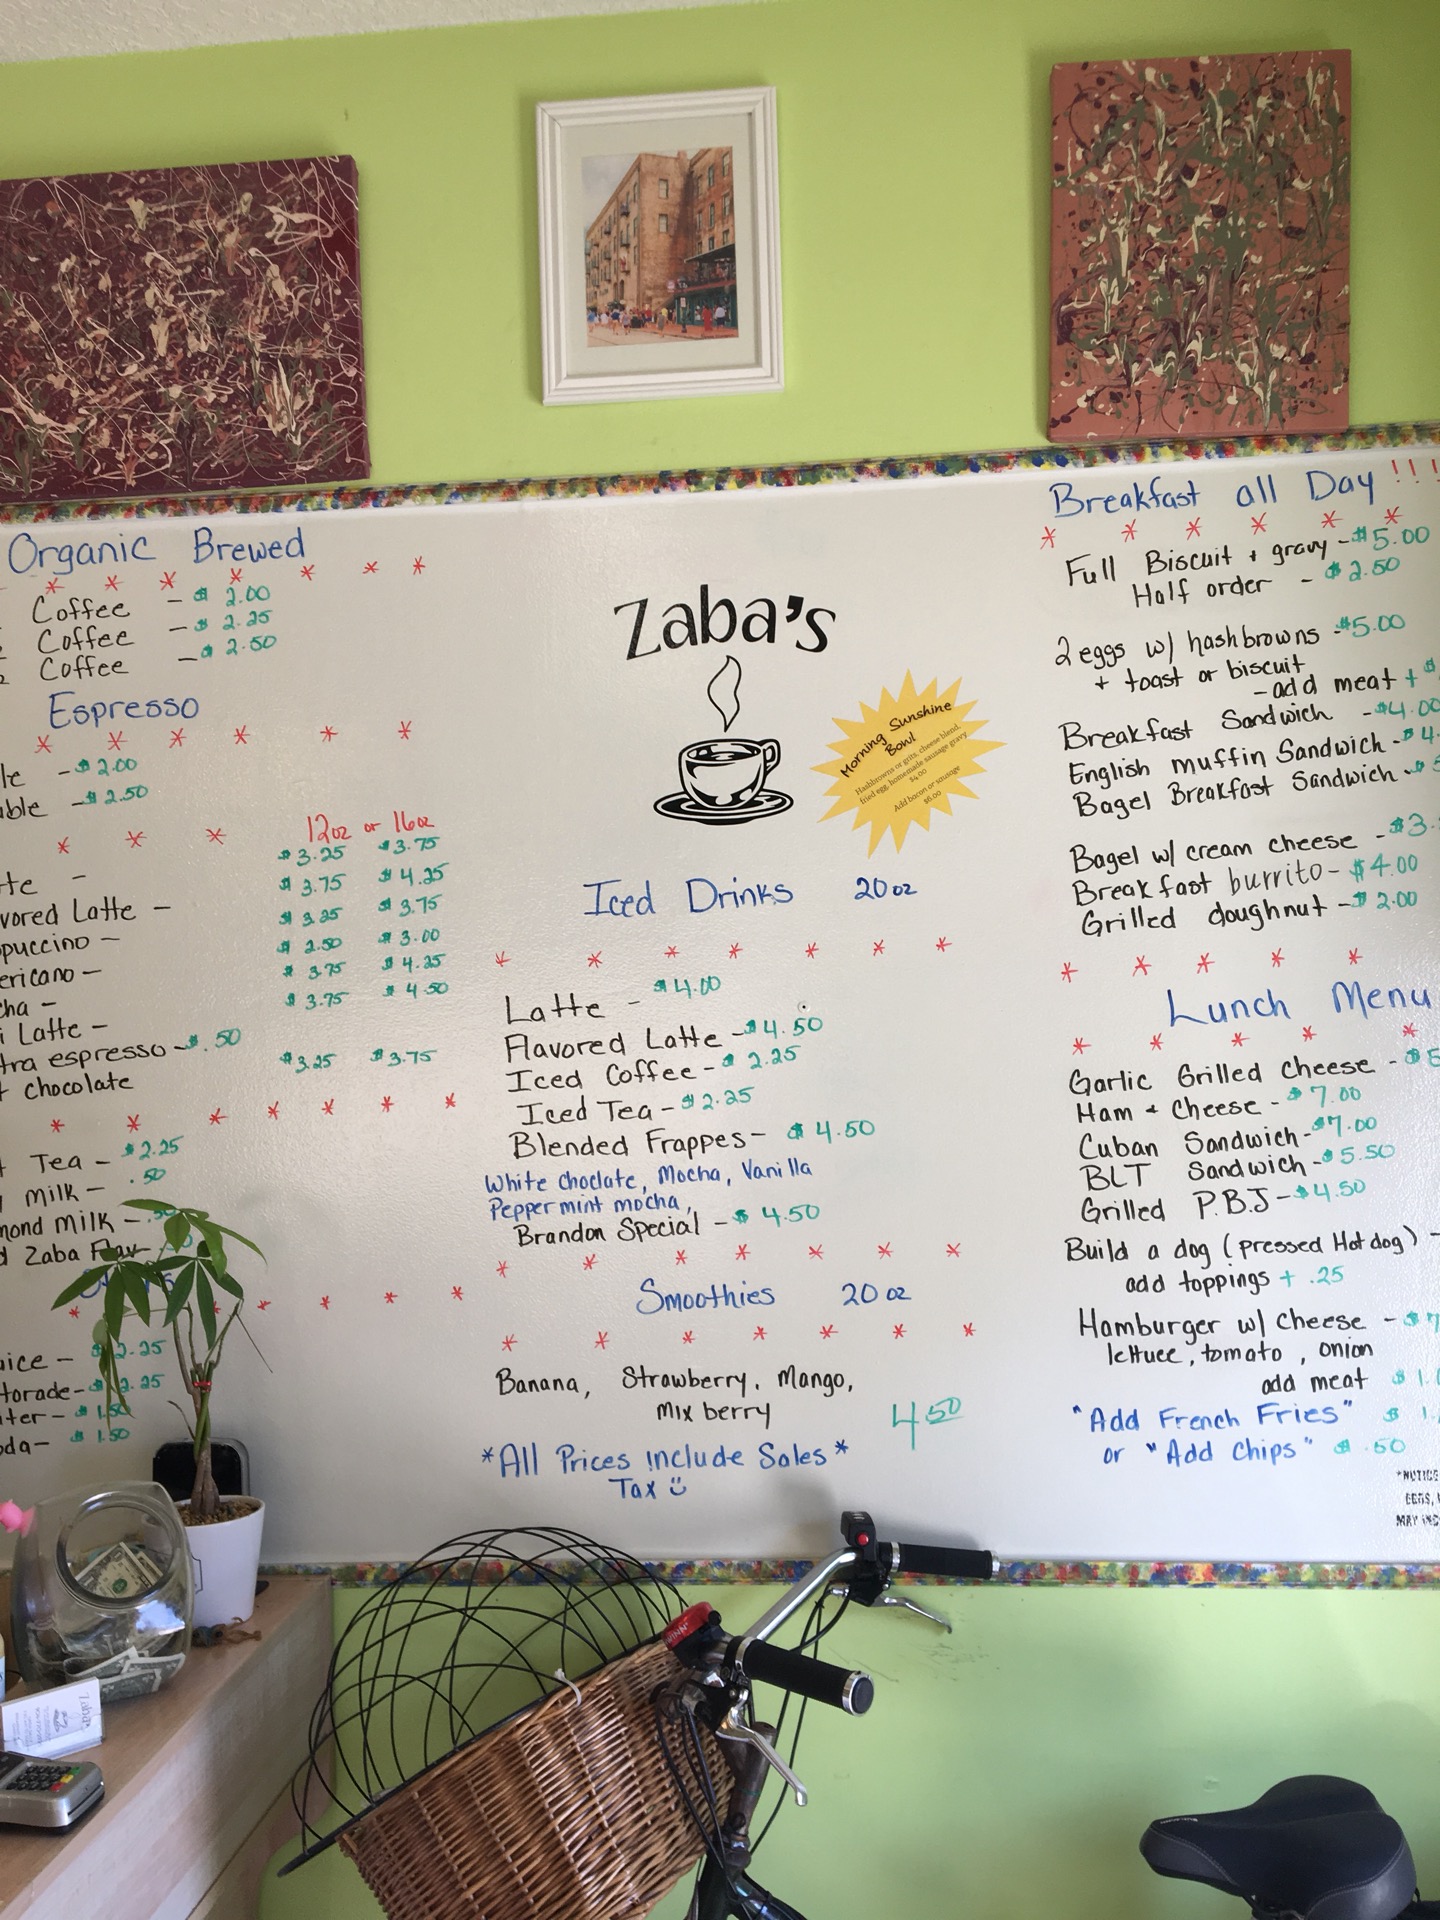 Organic Brewed
Coffee - $ 2.00
Coffee - $ 2.25
Coffee - $ 2.50
Espresso
le - $2.00
ble - $2.50
12oz or 16oz
te - $3.25 $3.75
vored Latte - $3.75 $4.25
puccino - $3.25 $3.75
ericano - $2.50 $3.00
cha - $3.75 $4.25
i Latte - $3.75 $4.50
tra espresso - $.50
t chocolate $3.25 $3.75
Tea - $2.25
milk - .50
mond milk - .50
d Zaba Flav
uice - $2.25
torade - $2.25
ter - $1.50
da - $1.50
Zaba's
Morning Sunshine
Bowl
Hashbrowns or grits, cheese blend,
fried egg, homemade sausage gravy
$4.00
Add bacon or sausage
$6.00
Iced Drinks 20oz
Latte - $4.00
Flavored Latte - $4.50
Iced Coffee - $2.25
Iced Tea - $2.25
Blended Frappes - $4.50
White choclate, Mocha, Vanilla
Peppermint mocha,
Brandon Special - $4.50
Smoothies 20oz
Banana, Strawberry, Mango,
Mix berry
4.50
*All Prices Include Sales*
Tax
Breakfast all Day !!!
Full Biscuit + gravy - $5.00
Half order - $2.50
2 eggs w/ hashbrowns - $5.00
+ toast or biscuit
- add meat + $
Breakfast Sandwich - $4.00
English muffin Sandwich - $4.
Bagel Breakfast Sandwich - $
Bagel w/ cream cheese - $3.
Breakfast burrito - $4.00
Grilled doughnut - $2.00
Lunch Menu
Garlic Grilled Cheese - $
Ham + Cheese - $7.00
Cuban Sandwich - $7.00
BLT Sandwich - $5.50
Grilled P.B.J - $4.50
Build a dog (pressed Hot dog) -
add toppings + .25
Hamburger w/ Cheese - $7
lettuce, tomato, onion
add meat $1.
"Add French Fries" $1.
or "Add Chips" $.50
*NOTICE
EGGS,
MAY INC
Zaba's